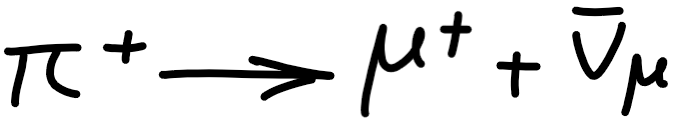 π⁺ ⟶ μ⁺ + ν̄_μ